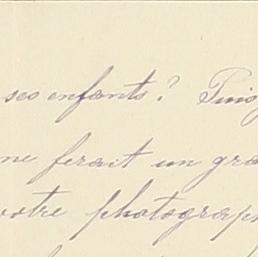 ses enfants? Puis
me ferait un gra
votre photograph